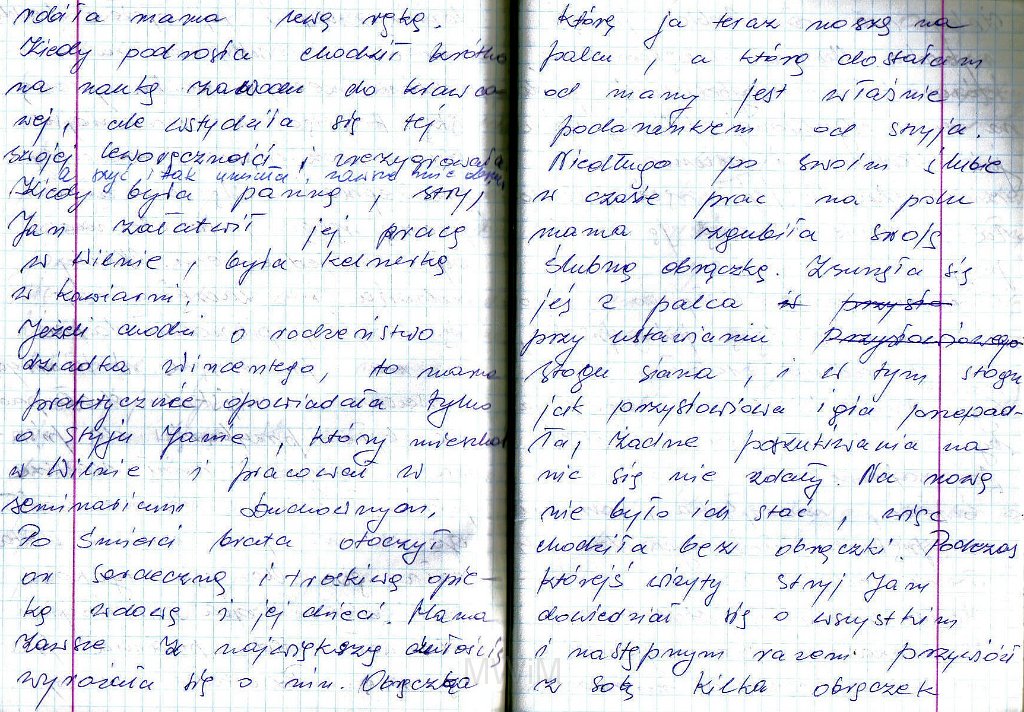 robiła mama lewą ręką.
Kiedy podrosła chodził krótko
na naukę zawodu do krawco-
wej, ale wstydziła się tej
swojej leworęczności i zrezygnowała,
a szyć i tak umiała, zawsze mnie
Kiedy była panną, stryj
Jan załatwił jej pracę
w Wilnie, była kelnerką
w kawiarni.
Jeżeli chodzi o rodzeństwo
dziadka Wincentego, to mama
praktycznie opowiadała tylko
o stryju Janie, który mieszkał
w Wilnie i pracował w
seminarium Duchownym,
Po śmierci brata otoczył
on serdeczną i troskliwą opie-
ką wdowę i jej dzieci. Mama
zawsze z największą czułością
wyrażała się o nim. Obrączka
którą ja teraz noszę na
palcu, a którą dostałam
od mamy jest właśnie
podarunkiem od stryja.
Niedługo po swoim ślubie
w czasie prac na polu
mama zgubiła swoją
ślubną obrączkę. Zsunęła się
jej z palca w przysło
przy ustawianiu Przysłowiowego
stogu siana, i w tym stogu
jak przysłowiowa igła przepad-
ła, żadne poszukiwania na
nic się nie zdały. Na nową
nie było ich stać, więc
chodziła bez obrączki. Podczas
którejś wizyty stryj Jan
dowiedział się o wszystkim
i następnym razem przywiózł
z sobą kilka obrączek
MWM